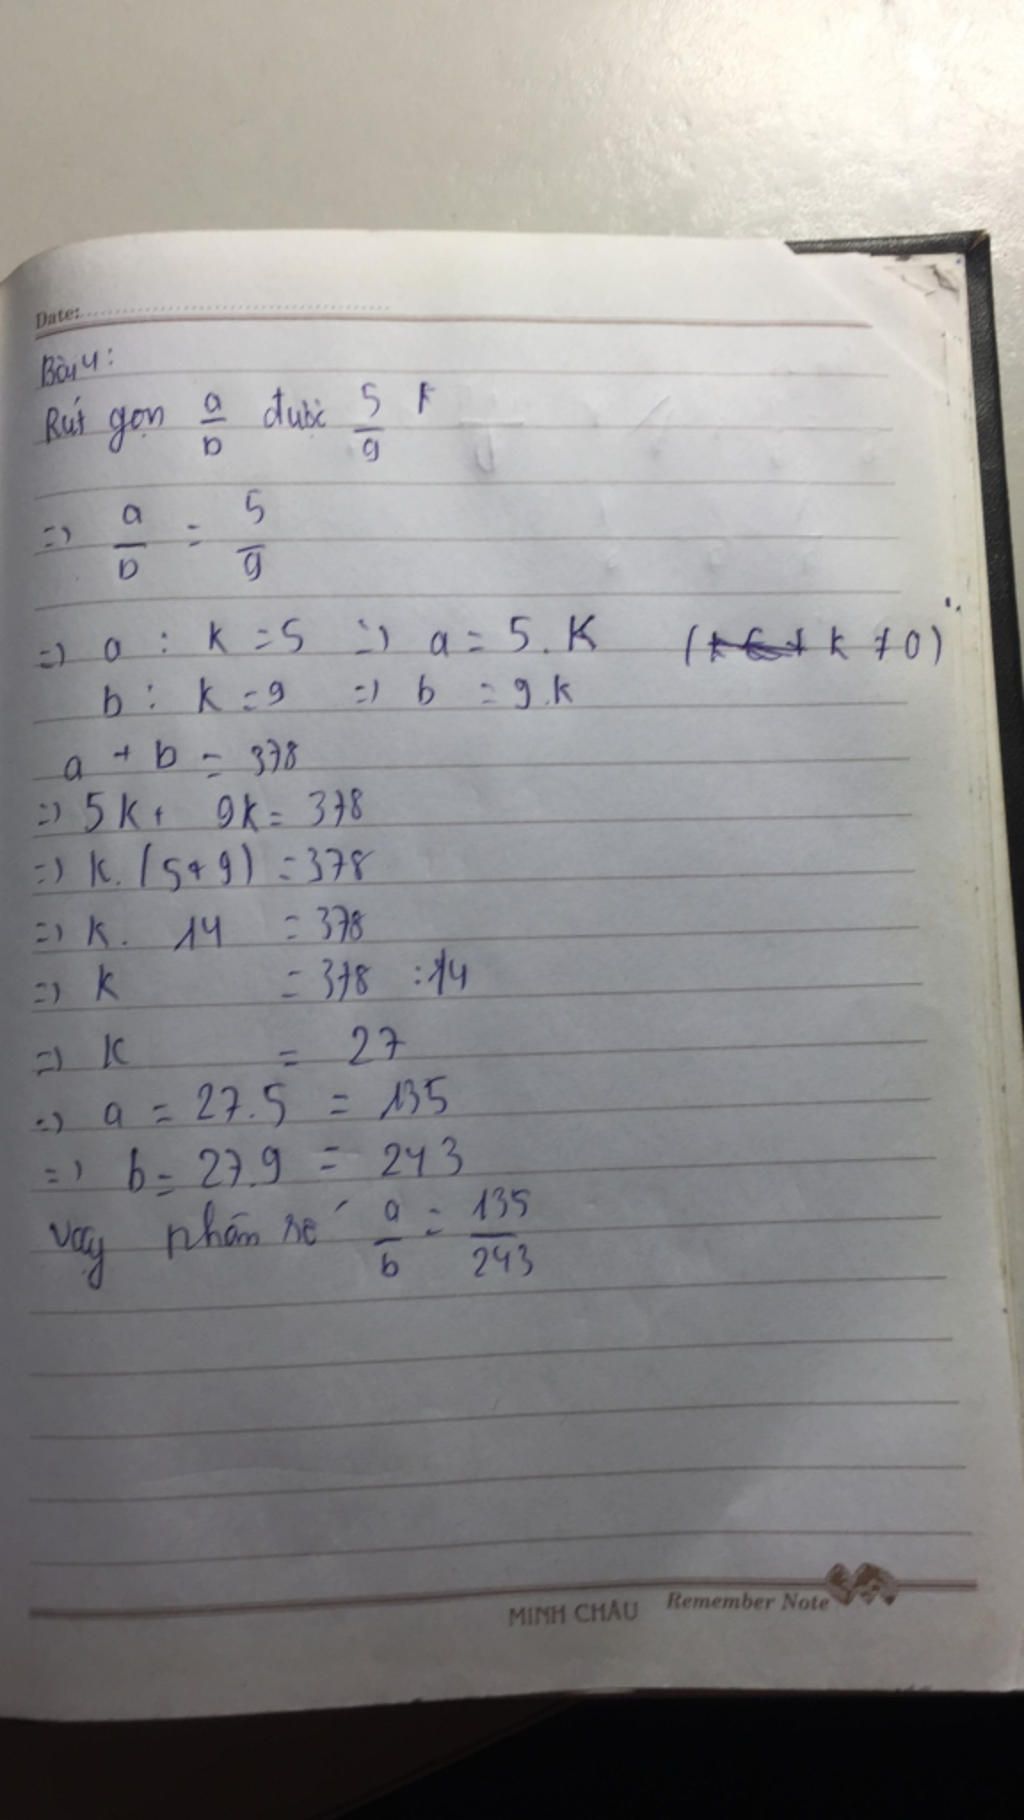 Date:
Bài 4:
Rút gọn a/b được 5/9
=> a/b = 5/9
=> a : k = 5 => a = 5.k (k ≠ 0)
b : k = 9 => b = 9.k
a + b = 378
=> 5k + 9k = 378
=> k.(5+9) = 378
=> k. 14 = 378
=> k = 378 : 14
=> k = 27
=> a = 27.5 = 135
=> b = 27.9 = 243
Vậy phân số a/b = 135/243
MINH CHÂU Remember Note